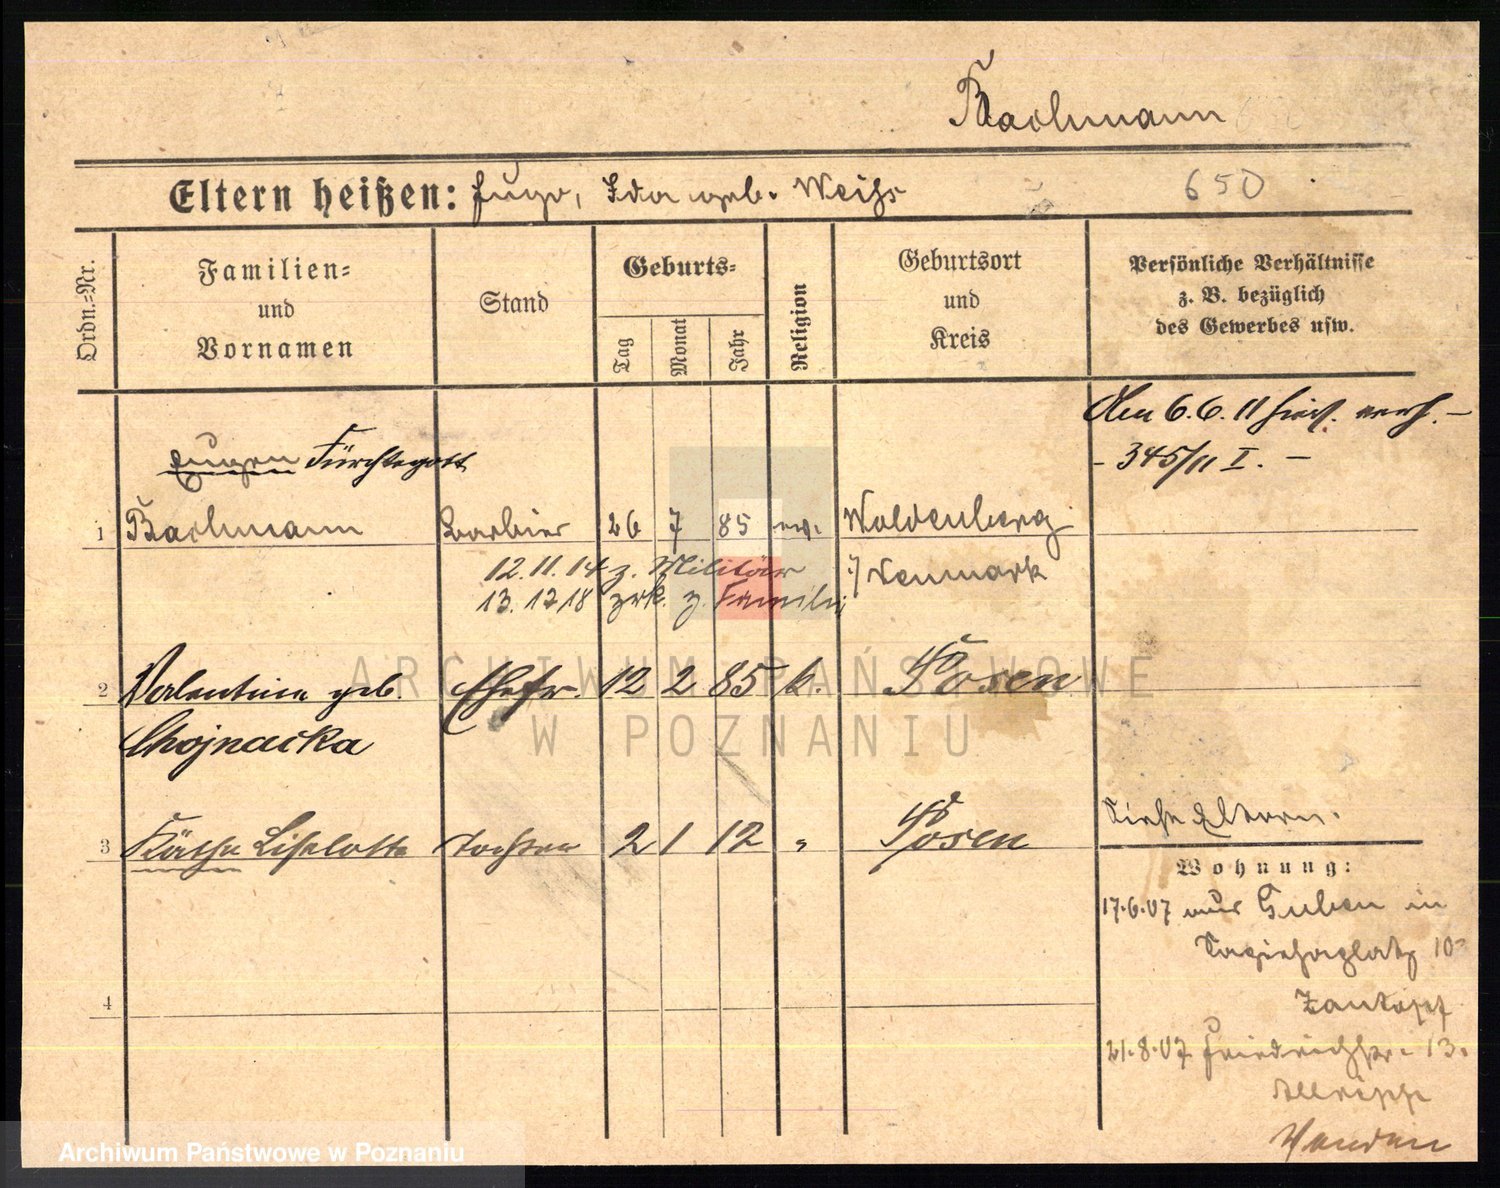 Bachmann
Eltern heißen: Hugo, Ida geb. Weihs
650
Ordn.=Nr.
Familien=
und
Vornamen
Stand
Geburts=
Tag
Monat
Jahr
Religion
Geburtsort
und
Kreis
Persönliche Verhältnisse
z. B. bezüglich
des Gewerbes usw.
Am 6.6.11 hier verh. –
– 345/11 I. –
Eugen Fürchtegott
1 Bachmann Barbier 26 7 85 ev. Woldenberg
12.11.14 z. Militär
Neumark
13.12.18 zrk. z. Familie
2 Valentine geb. Ehefr. 12 2 85 k. Posen
Chojnacka
3 Käthe Liselotte Tochter 2 1 12 " Posen
Siehe Eltern.
Wohnung:
17.6.07 aus Guben in
Sapiehaplatz 10
21.8.07 Friedrichstr. 13.
4
ARCHIWUM PAŃSTWOWE
W POZNANIU
Archiwum Państwowe w Poznaniu